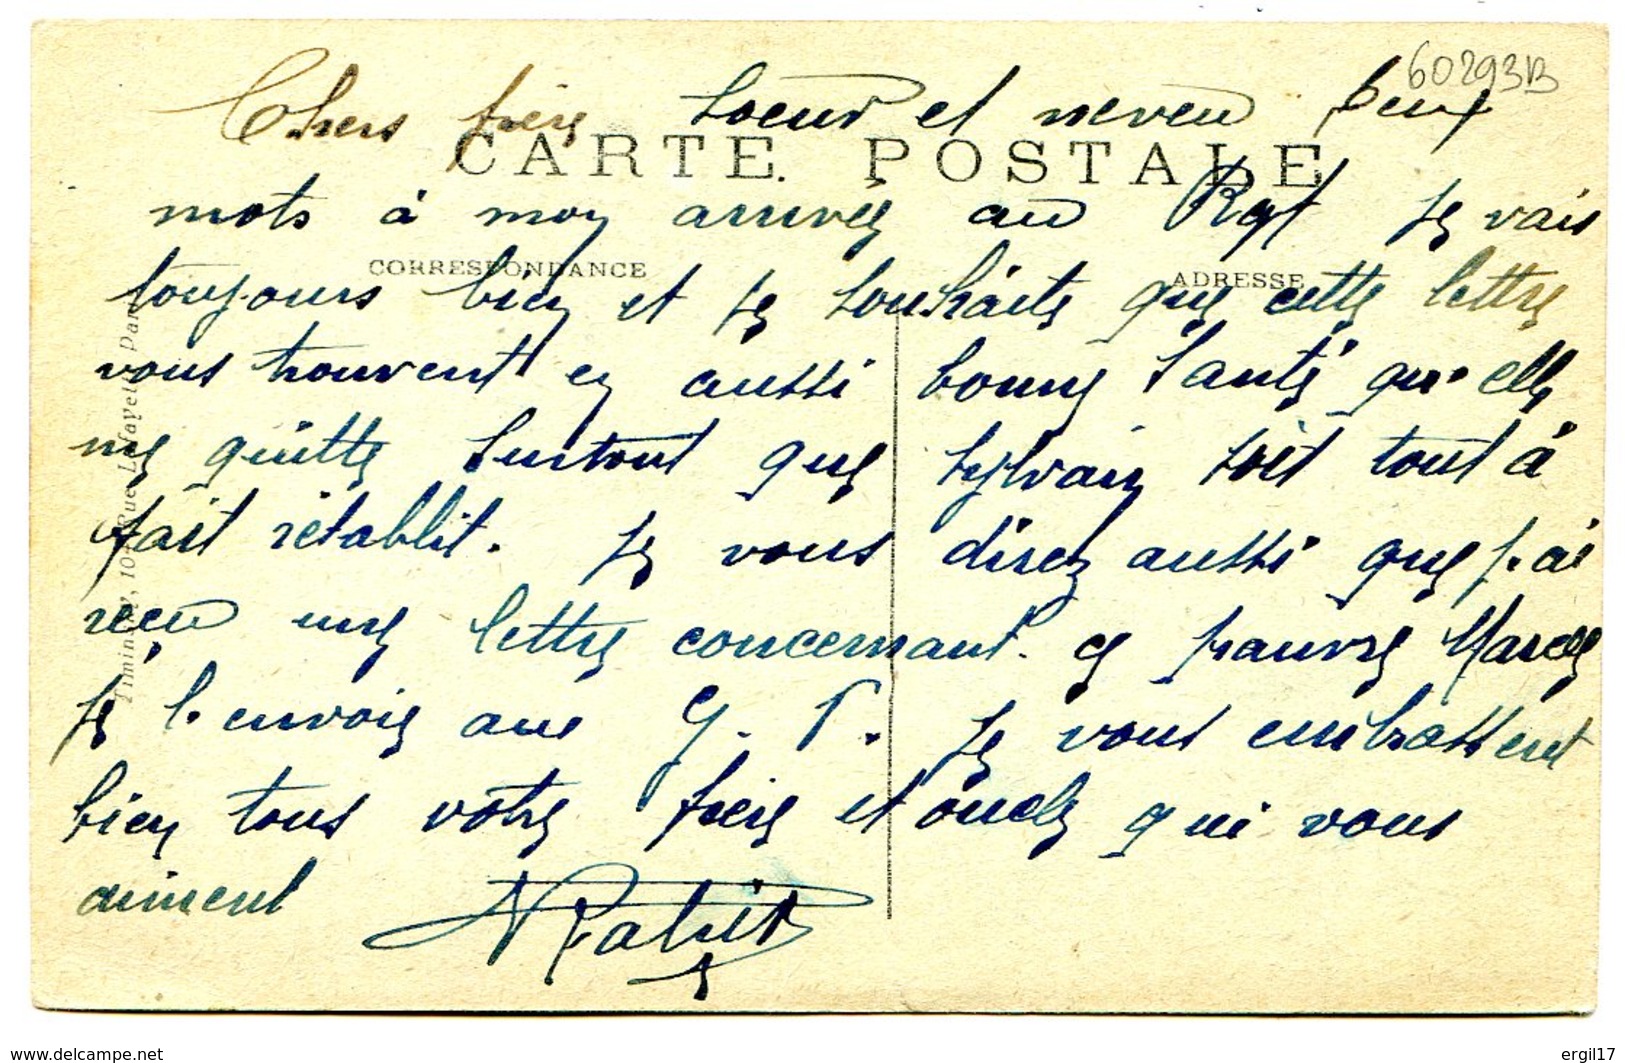 60293B
Chers frère soeur et neveu Deux
CARTE POSTALE
mots à mon arrivée au Rgt Je vais
CORRESPONDANCE ADRESSE
toujours bien et je souhaite que cette lettre
vous trouvent en aussi bonne Santé qu'elle
me quitte Surtout que Sylvain soit tout à
fait rétablit. Je vous direz aussi que j'ai
recu une lettre concernant. ce pauvre Marcel
Je l'envoie aux G. P. Je vous embrassent
bien tous votre frère et oncle qui vous
aiment
Rue Lafayette Paris
www.delcampe.net
ergil17